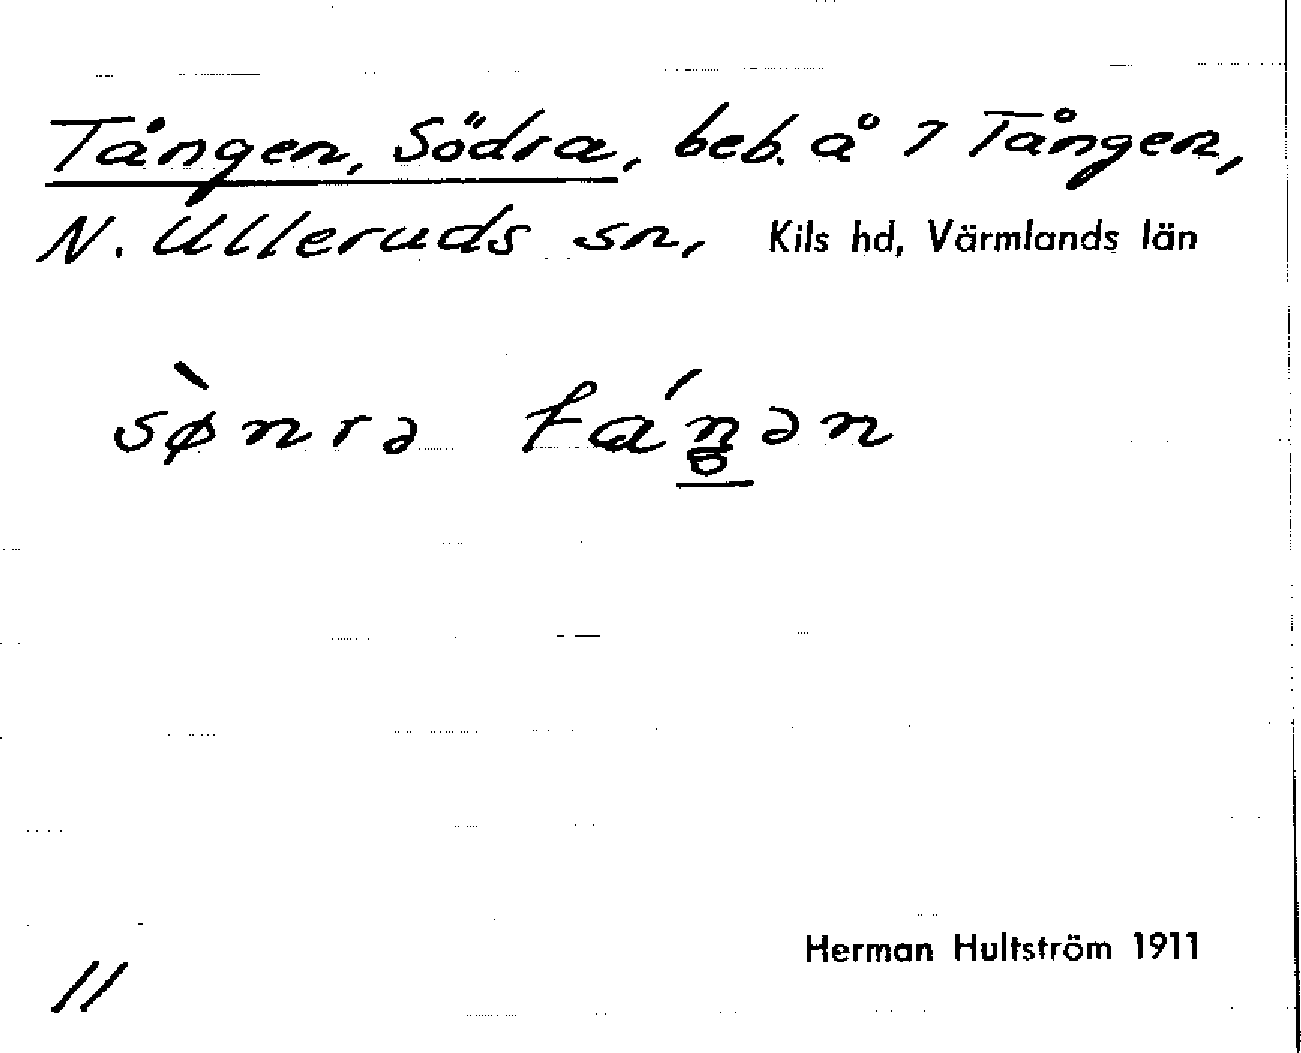 Tången, Södra, beb. å 7 Tången,
N. Ulleruds sn, Kils hd, Värmlands län
sø̀nrə táŋən
Herman Hultström 1911
11